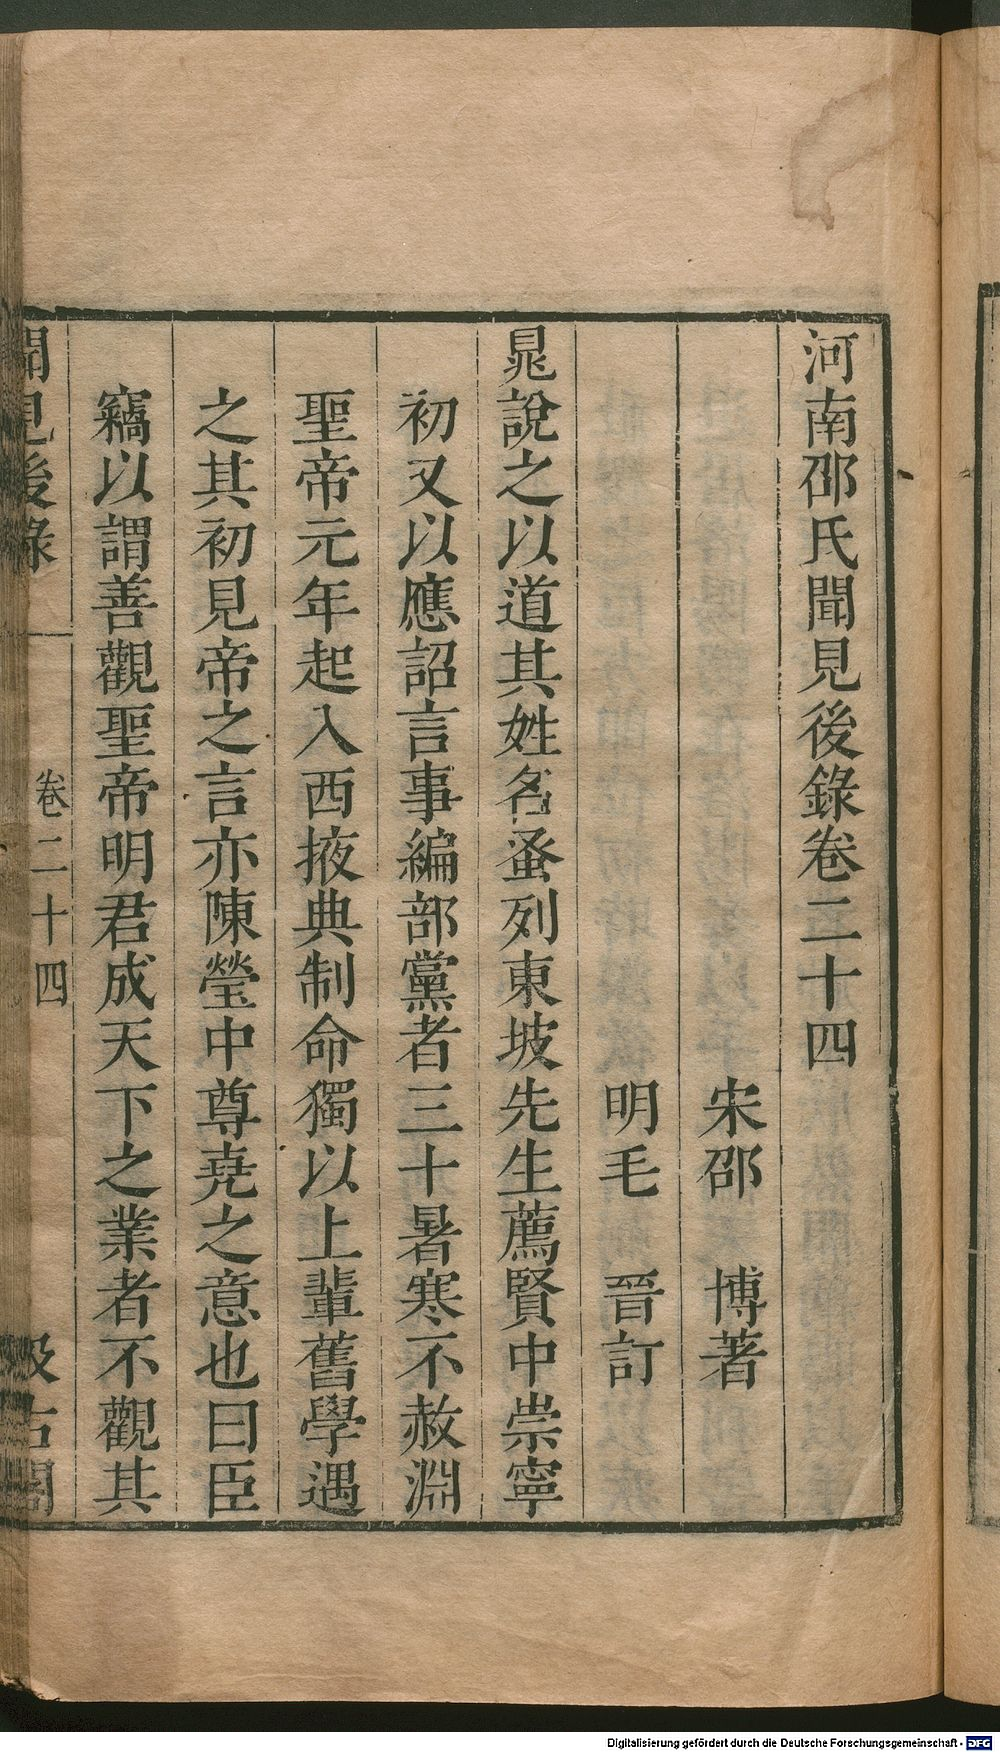 河南邵氏聞見後錄卷二十四
宋邵　博著
明毛　晉訂
晁說之以道其姓名蚤列東坡先生薦賢中崇寧
初又以應詔言事編部黨者三十暑寒不赦淵
聖帝元年起入西掖典制命獨以上輩舊學遇
之其初見帝之言亦陳瑩中尊堯之意也曰臣
竊以謂善觀聖帝明君成天下之業者不觀其
聞見後錄　卷二十四　汲古閣
Digitalisierung gefördert durch die Deutsche Forschungsgemeinschaft - DFG